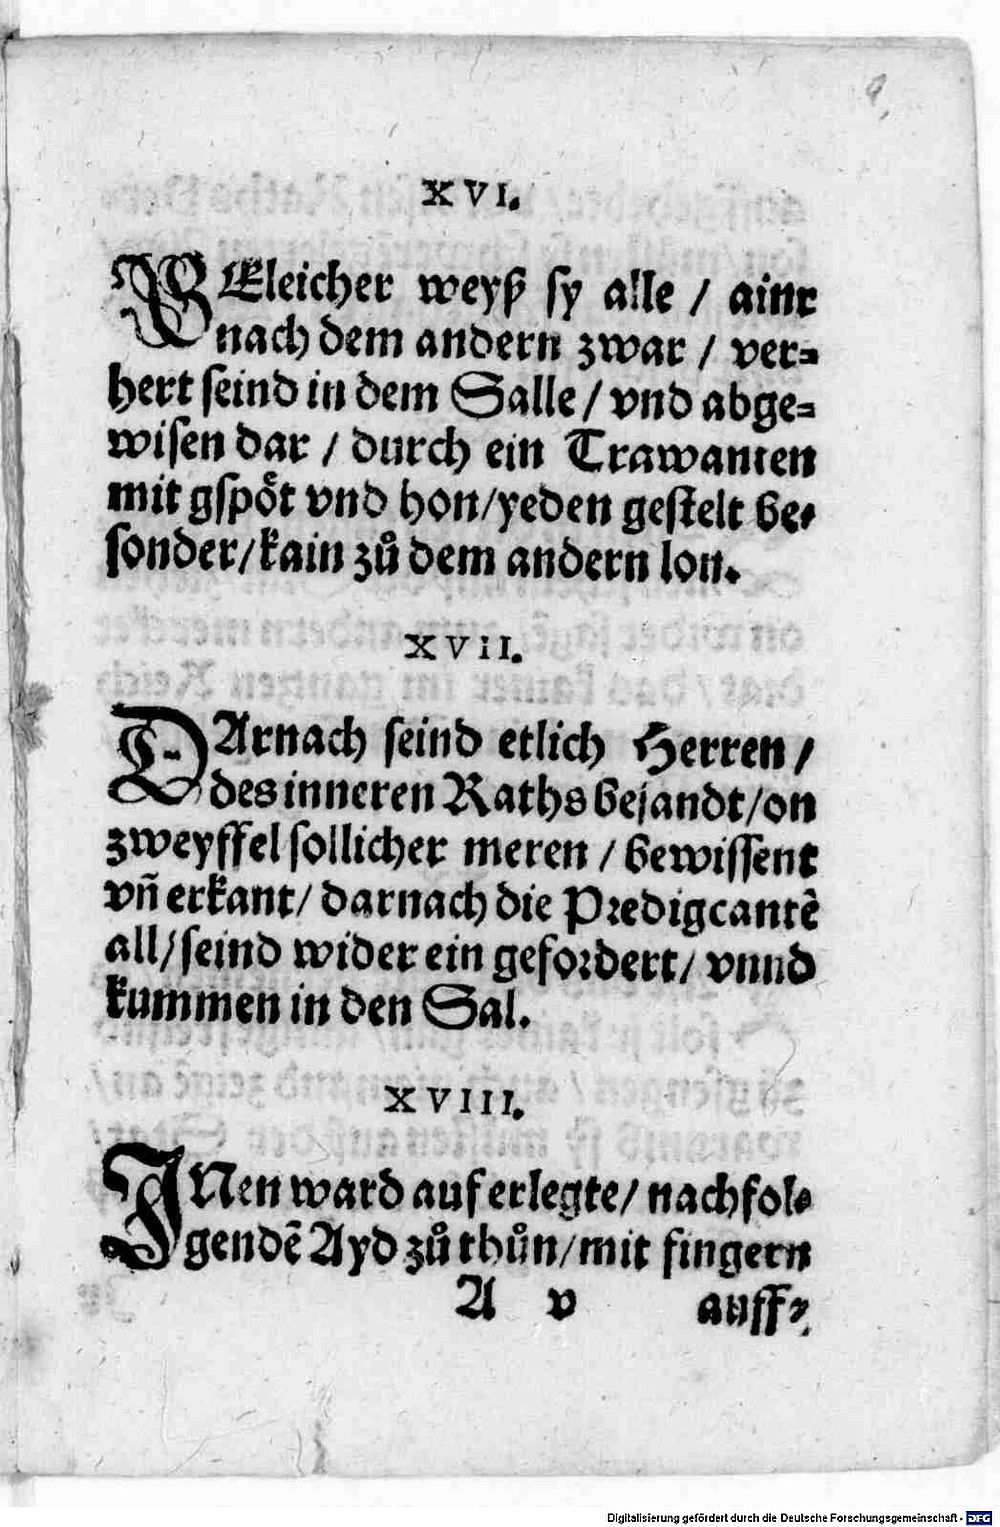 9.
XVI.
WEleicher weyß sy alle / ainr
nach dem andern zwar / ver⸗
hert seind in dem Salle / vnd abge⸗
wisen dar / durch ein Trawanten
mit gspöt vnd hon / yeden gestelt be⸗
sonder / kain zů dem andern lon.
XVII.
DArnach seind etlich Herren /
des inneren Raths besandt / on
zweyffel sollicher meren / bewissent
vn̄ erkant / darnach die Predigcantē
all / seind wider ein gefordert / vnnd
kummen in den Sal.
XVIII.
INen ward auf erlegte / nachfol⸗
gendē Ayd zů thůn / mit fingern
A v auff⸗
Digitalisierung gefördert durch die Deutsche Forschungsgemeinschaft - DFG